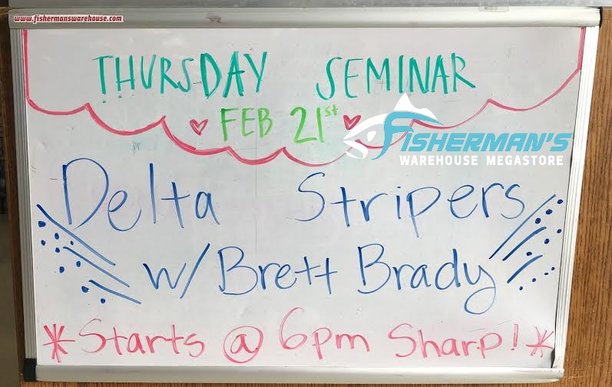 www.fishermanswarehouse.com
THURSDAY SEMINAR
FEB 21st
FISHERMAN'S
WAREHOUSE MEGASTORE
Delta Stripers
w/ Brett Brady
*Starts @ 6pm Sharp!*